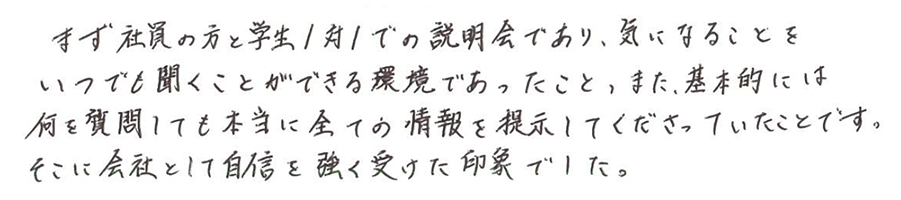 まず社員の方と学生1対1での説明会であり、気になることを
いつでも聞くことができる環境であったこと、また、基本的には
何を質問しても本当に全ての情報を提示してくださっていたことです。
そこに会社として自信を強く受けた印象でした。